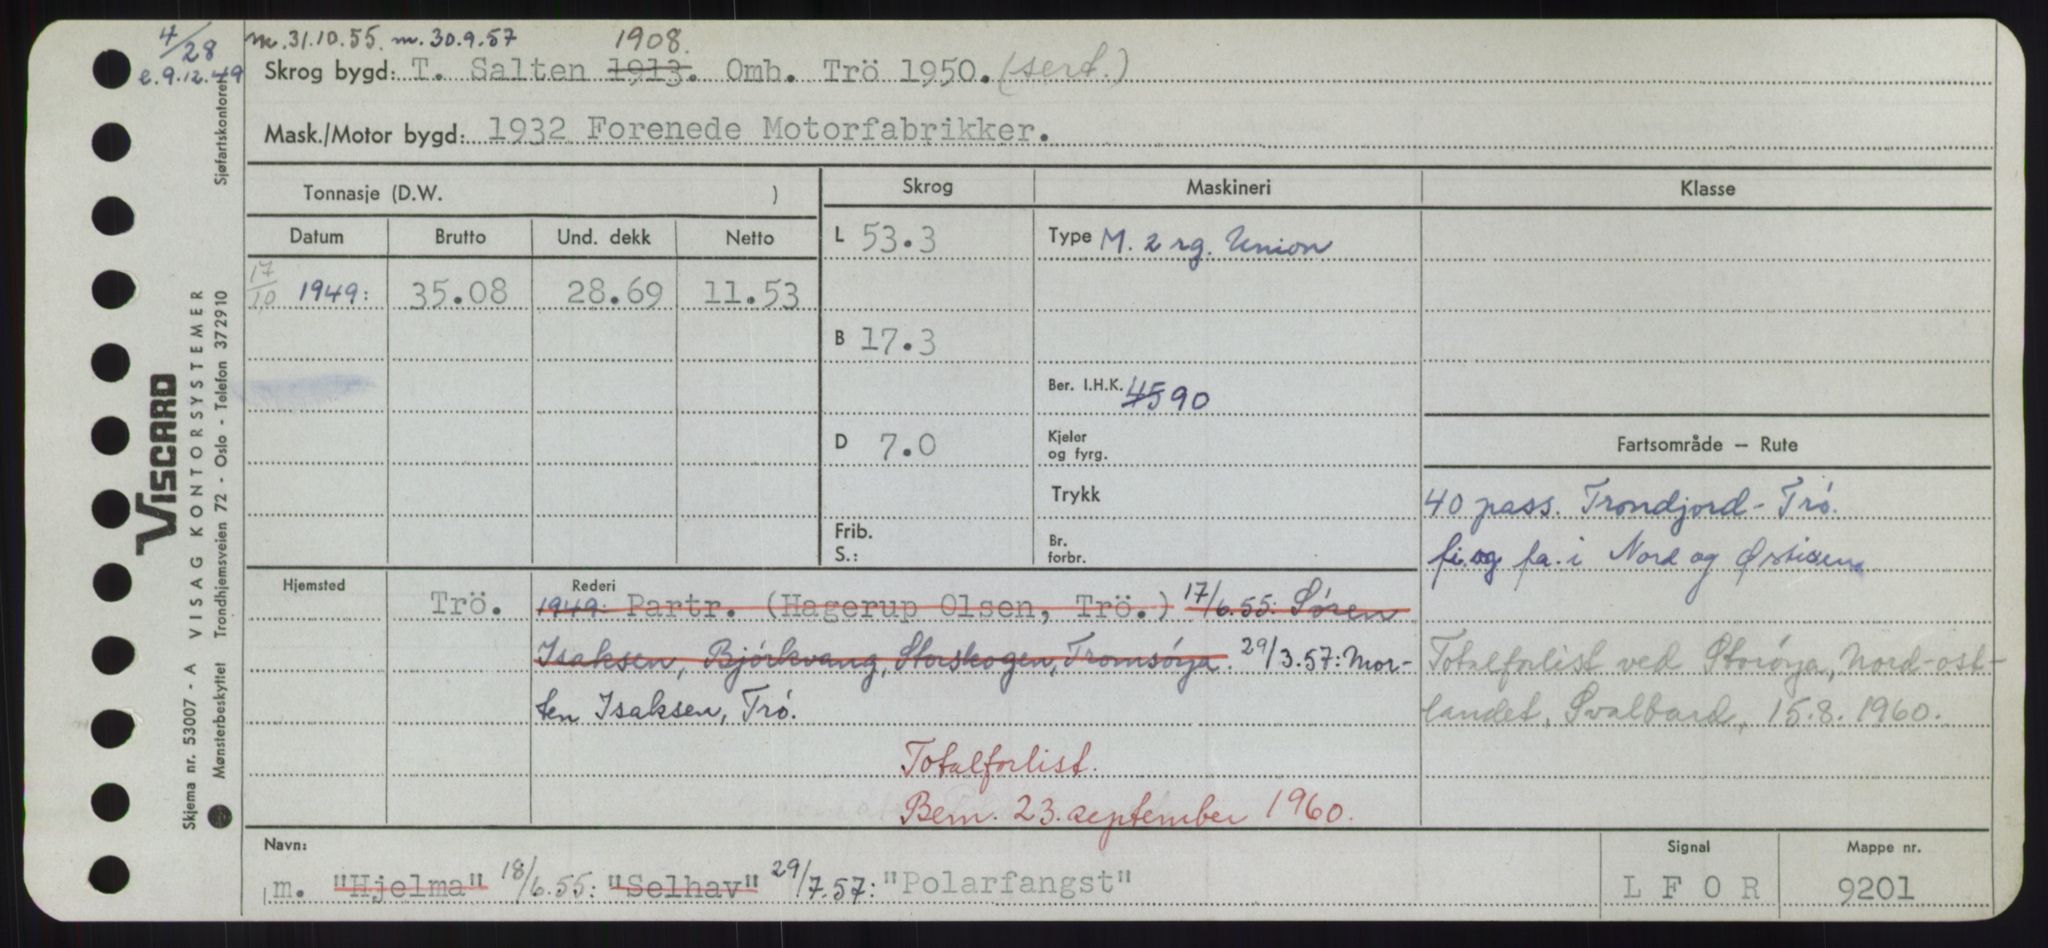 4/28
e. 9.12.49
m. 31.10.55. m. 30.9.57
1908.
Skrog bygd: T. Salten 1913. Omb. Trö 1950. (sert.)
Mask./Motor bygd: 1932 Forenede Motorfabrikker.
Tonnasje (D.W. )
Skrog
Maskineri
Klasse
Datum Brutto Und. dekk Netto
17/10 1949: 35.08 28.69 11.53
L 53.3
B 17.3
D 7.0
Frib.
S.:
Type M. 2 rg. Union
Ber. I.H.K. 45 90
Kjeler
og fyrg.
Trykk
Br.
forbr.
Fartsområde – Rute
40 pass. Trondjord - Trö.
fi. og fa. i Nord og Østisen.
Totalforlist ved Storøya, Nord-ost-
landet, Svalbard, 15.8.1960.
Hjemsted
Trö.
Rederi
1949: Partr. (Hagerup Olsen, Trö.) 17/6.55: Søren
Isaksen, Bjórkvang, Storskogen, Tromsøya. 29/3.57: Mor-
ten Isaksen, Trö.
Totalforlist.
Bem. 23. september 1960.
Navn:
m. "Hjelma" 18/6.55: "Selhav" 29/7.57: "Polarfangst"
Signal
L F O R
Mappe nr.
9201
VISCARD
VISAG KONTORSYSTEMER
Skjema nr. 53007 - A
Mønsterbeskyttet Trondhjemsveien 72 - Oslo - Telefon 372910
Sjøfartskontoret